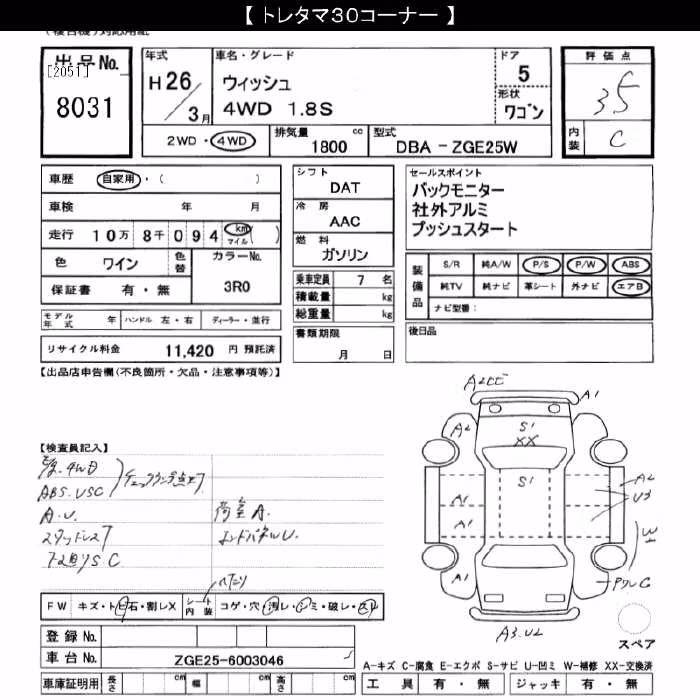 【 トレタマ30コーナー 】
出品No. 年式 車名・グレード ドア 評価点
[2051] H26/3月 ウィッシュ 5 3.5
8031 4WD 1.8S 形状 ワゴン 内装 C
2WD・4WD 排気量 1800 cc 型式 DBA - ZGE25W
車歴 自家用・( )
シフト DAT
セールスポイント
バックモニター
社外アルミ
プッシュスタート
車検 年 月
冷房 AAC
走行 10万 8千 0 9 4 km マイル ( )
燃料 ガソリン
色 ワイン 色替 カラーNo. 3R0
保証書 有・無
乗車定員 7 名
積載量 kg
総重量 kg
装備品 S/R 純A/W P/S P/W ABS
純TV 純ナビ 革シート 外ナビ エアB
ナビ型番:
モデル年式 年 ハンドル 左・右 ディーラー・並行
書類期限 月 日
後日品
リサイクル料金 11,420 円 預託済
【出品店申告欄(不良箇所・欠品・注意事項等)】
【検査員記入】
ABS.VSC
A.U.
荷室A.
エンドパネルU.
A2CC
A1
A2
S1
XX
S1
A2
U3
A1
A1
W1
A1
A3.U2
FW キズ・トビ石・割レX シート内装 コゲ・穴・汚レ・シミ・破レ・スレ
ヘタリ
登録No.
車台No. ZGE25-6003046
スペア
A-キズ C-腐食 E-エクボ S-サビ U-凹ミ W-補修 XX-交換済
車庫証明用 長さ cm 幅 cm 高さ cm
工具 有・無 ジャッキ 有・無